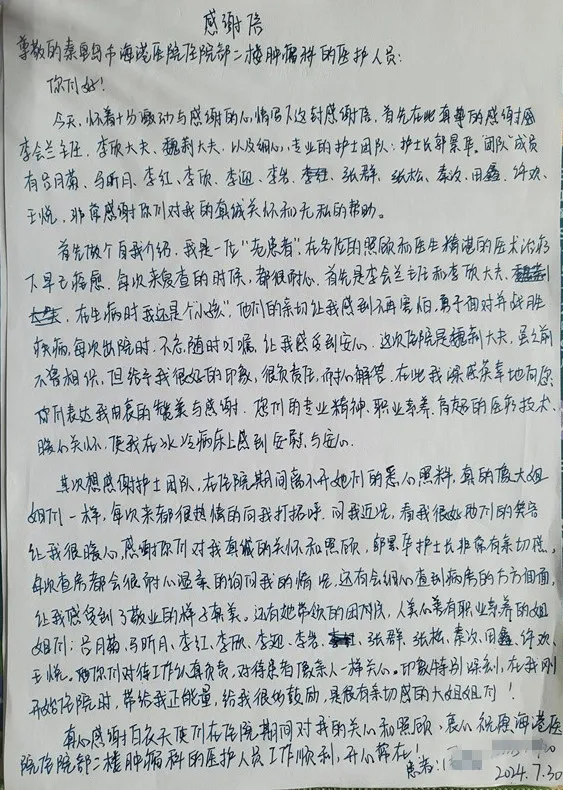 感谢信
尊敬的秦皇岛市海港医院住院部二楼肿瘤科的医护人员:
你们好!
今天,怀着十分激动与感谢的心情写下这封感谢信,首先在此真挚的感谢
李会兰主任、李欣大夫、魏莉大夫,以及细心,专业的护士团队:护士长郭景华。团队成员
有吕月菊、马昕月、李红、李欣、李迎、李岩、张群、张松、秦汝、田鑫、许欢、
王悦,非常感谢你们对我的真诚关怀和无私的帮助。
首先做个自我介绍,我是一位“老患者”,在各位的照顾和医生精湛的医术治疗
下早已痊愈。每次来复查的时候,都很耐心。首先是李会兰主任和李欣大夫、
,在生病时我还是个“小孩”,他们的亲切让我感到不再害怕,勇于面对并战胜
疾病,每次出院时,不忘随时叮嘱,让我感受到安心。这次住院是魏莉大夫,虽之前
不曾相识,但给予我很好的印象,很负责任,耐心解答,在此我深感荣幸地向您
你们表达我由衷的赞美与感谢。您们的专业精神、职业素养、良好的医疗技术、
暖心关怀,使我在冰冷病床上感到安慰与安心。
其次想感谢护士团队,在住院期间离不开她们的悉心照料,真的像大姐
姐们一样,每次来都很热情的向我打招呼,问我近况,看我很好她们的笑容
让我很暖心,感谢你们对我真诚的关怀和照顾,郭景华护士长非常有亲切感,
每次查房都会很耐心温柔的询问我的情况,还有会细心查到病房的方方面面,
让我感受到了敬业的样子真美。还有她带领的团队,人美心善有职业素养的姐
姐们:吕月菊、马昕月、李红、李欣、李迎、李岩、张群、张松、秦汝、田鑫、许欢、
王悦。她们对待工作认真负责,对待患者像亲人一样关心。印象特别深刻,在我刚
开始住院时,带给我正能量,给我很多鼓励,是很有亲切感的大姐姐们!
真心感谢白衣天使们在住院期间对我的关心和照顾,衷心祝愿海港医
院住院部二楼肿瘤科的医护人员工作顺利,开心常在!
患者:
2024.7.30